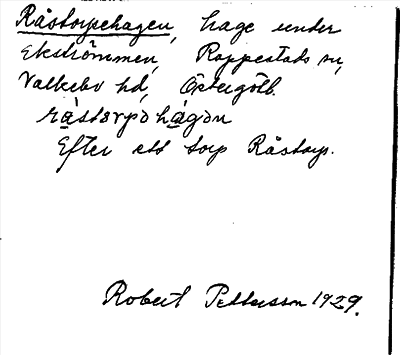 Råstorpehagen, hage under
Ekströmmen, Rappestads sn,
Valkebo hd, Östergötl.
råstorpəhágən
Efter ett torp Råstorp.
Robert Pettersson 1929.